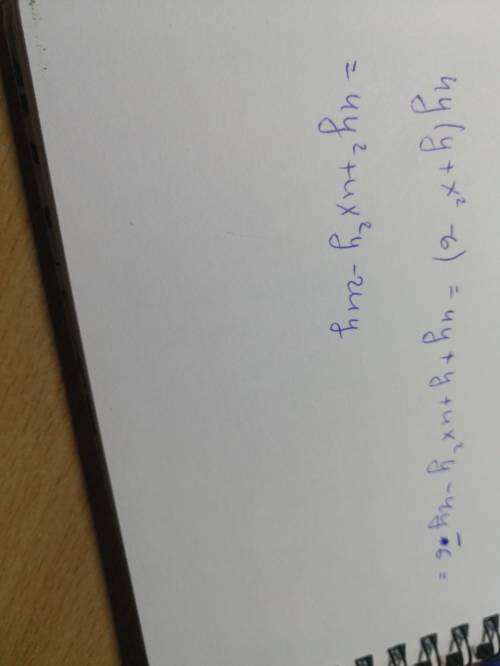 4y(y + x² - 6) = 4y + y + 4x²y - 4y • 6 =
= 4y² + 4x²y - 24y